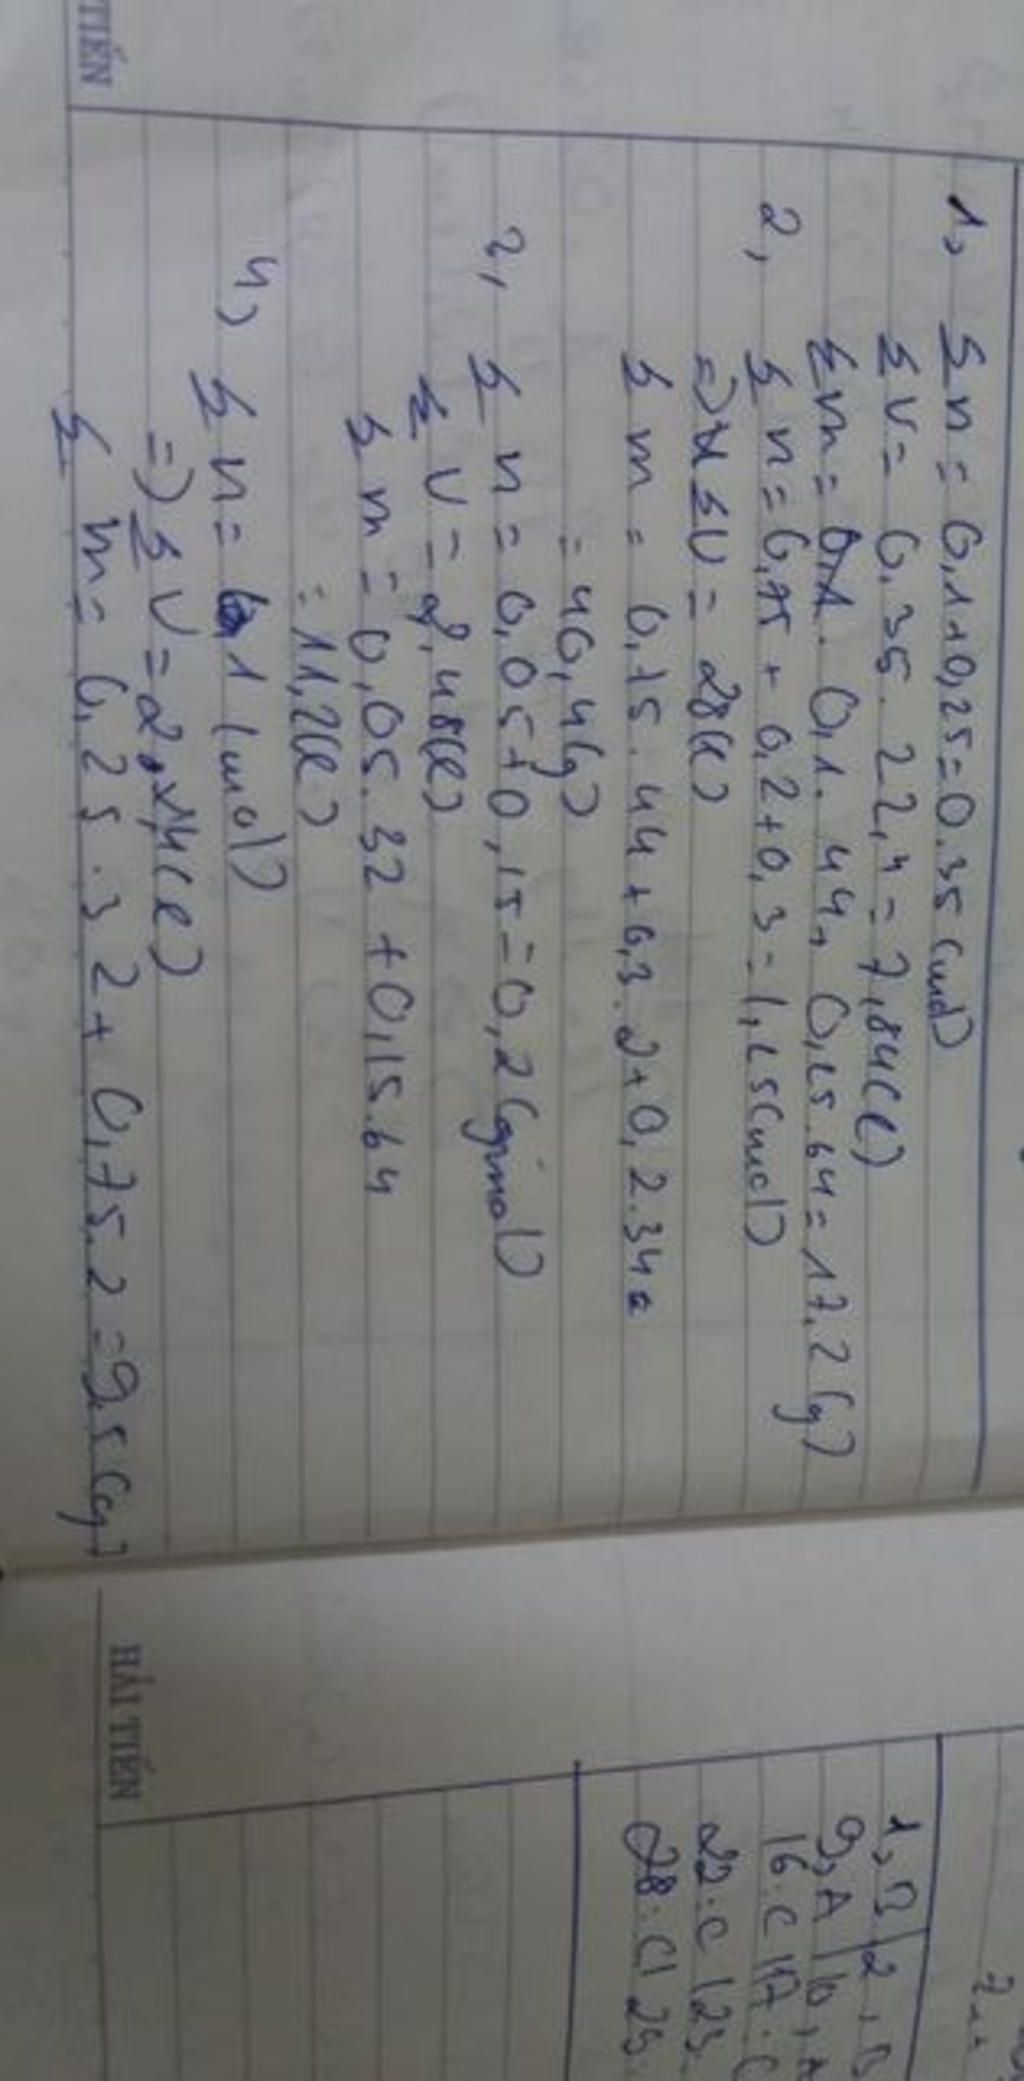 1, Σn = 0,1+0,25=0.35 (mol)
ΣV = 0.35. 22,4 = 7,84(l)
Σm = 0,1. 44+ 0,25.64 = 17,2 (g)
2, Σn = 0,75 + 0,2+0,3 = 1,25(mol)
=) ΣV = 28(l)
Σm = 0,75. 44 + 0,3. 2 + 0,2.34 =
= 40,4(g)
3, Σn = 0,05+0,15=0,2 (mol)
ΣV = 2,48(l)
Σm = 0,05.32 +0,15.64
= 11,2(l)
4, Σn = 1 (mol)
=) ΣV = 22,4(l)
Σm = 0,25.32+ 0,75.2 = 9,5(g)
TIẾN
HẢI TIẾN
1, B 2, B
9, A 10, A
16. C 17. C
22. C 23.
28. C 29.